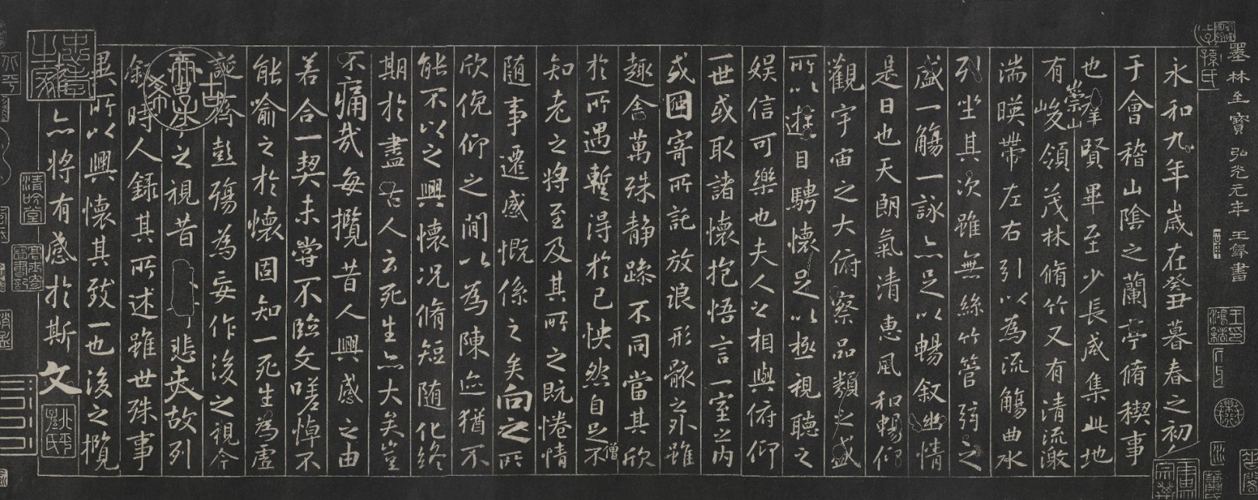 墨林至寶 弘光元年 王鐸書
孫氏
永和九年歲在癸丑暮春之初
于會稽山陰之蘭亭脩稧事
也群賢畢至少長咸集此地
有崇山峻領茂林脩竹又有清流激
湍暎帶左右引以為流觴曲水
列坐其次雖無絲竹管弦之
盛一觴一詠亦足以暢叙幽情
是日也天朗氣清惠風和暢仰
觀宇宙之大俯察品類之盛
所以遊目騁懷足以極視聽之
娛信可樂也夫人之相與俯仰
一世或取諸懷抱悟言一室之內
或因寄所託放浪形骸之外雖
趣舍萬殊静躁不同當其欣
於所遇蹔得於己怏然自足不
僧
知老之將至及其所之既惓情
随事遷感慨係之矣向之所
欣俛仰之閒以為陳迹猶不
能不以之興懷況脩短随化終
期於盡古人云死生亦大矣豈
不痛哉每攬昔人興感之由
若合一契未嘗不臨文嗟悼不
能喻之於懷固知一死生為虛
誕齊彭殤為妄作後之視今
亦由今之視昔悲夫故列
叙時人錄其所述雖世殊事
異所以興懷其致一也後之攬
亦將有感於斯文